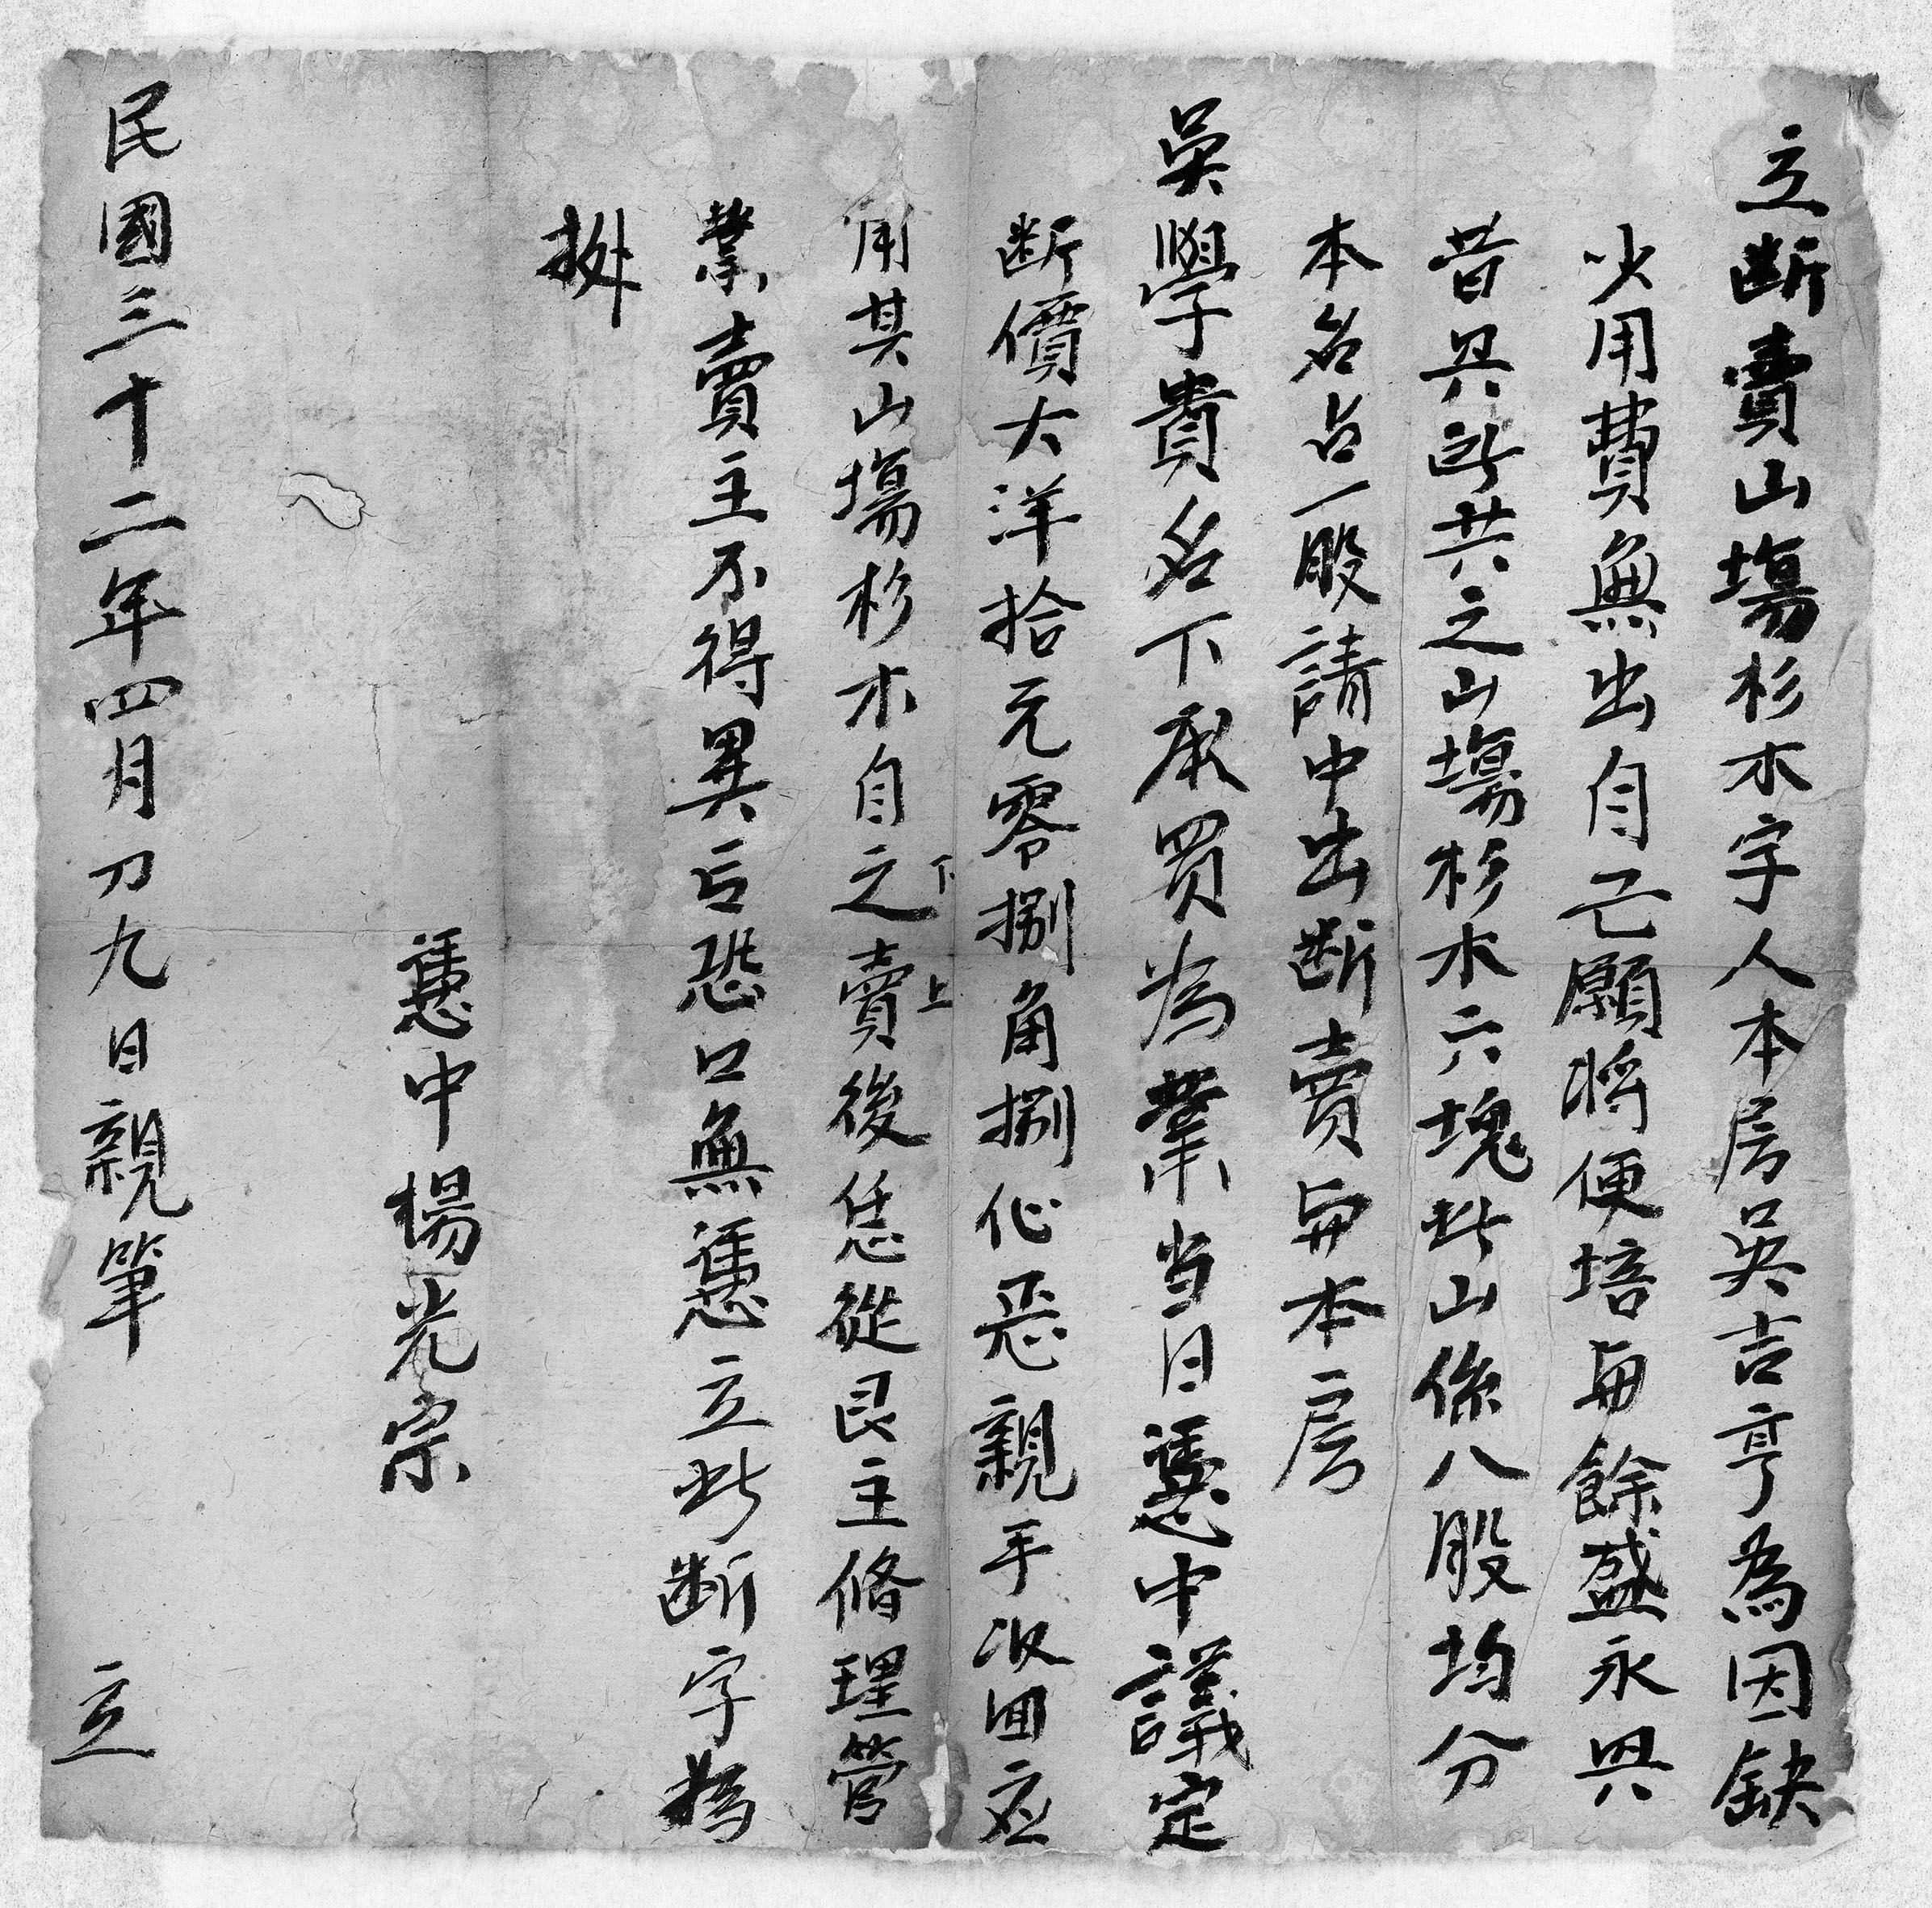 立断賣山塲杉木字人本房吳吉亨為因缺
少用費無出自己願將便培與餘盛永興
昔具所共之山塲杉木六塊此山係八股均分
本名占一股請中出断賣與本房
吳學貴名下承買為業当日憑中議定
断價大洋拾元零捌角捌仙亲親手収回应
用其山塲杉木自之下賣上後恁從買主脩理管
業賣主不得異言恐口無憑立此断字為
據
憑中楊光宗
民國三十二年四月初九日親筆 立